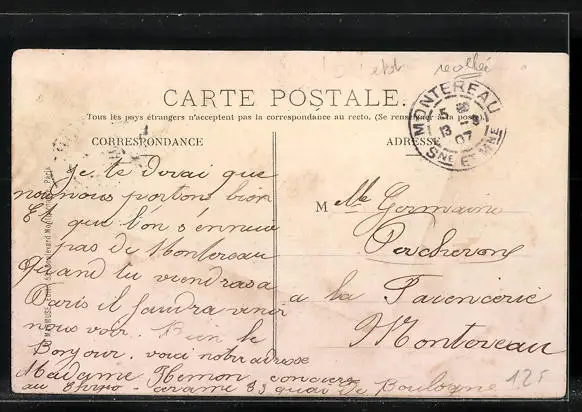 recollée
CARTE POSTALE.
Tous les pays étrangers n'acceptent pas la correspondance au recto. (Se renseigner à la poste).
CORRESPONDANCE
ADRESSE
MONTEREAU
5
13 -8
07
SNE ET MNE
Je te dirai que
nous nous portons bien
Et que l'on s'ennuie
pas de Montereau
Quand tu viendras a
Paris il faudra venir
nous voir. Bien le
Bonjour. voici notre adresse
Madame Hemon concierge
au 83 quai de Boulogne
M elle Germaine
a la Faiencerie
Montereau
12F